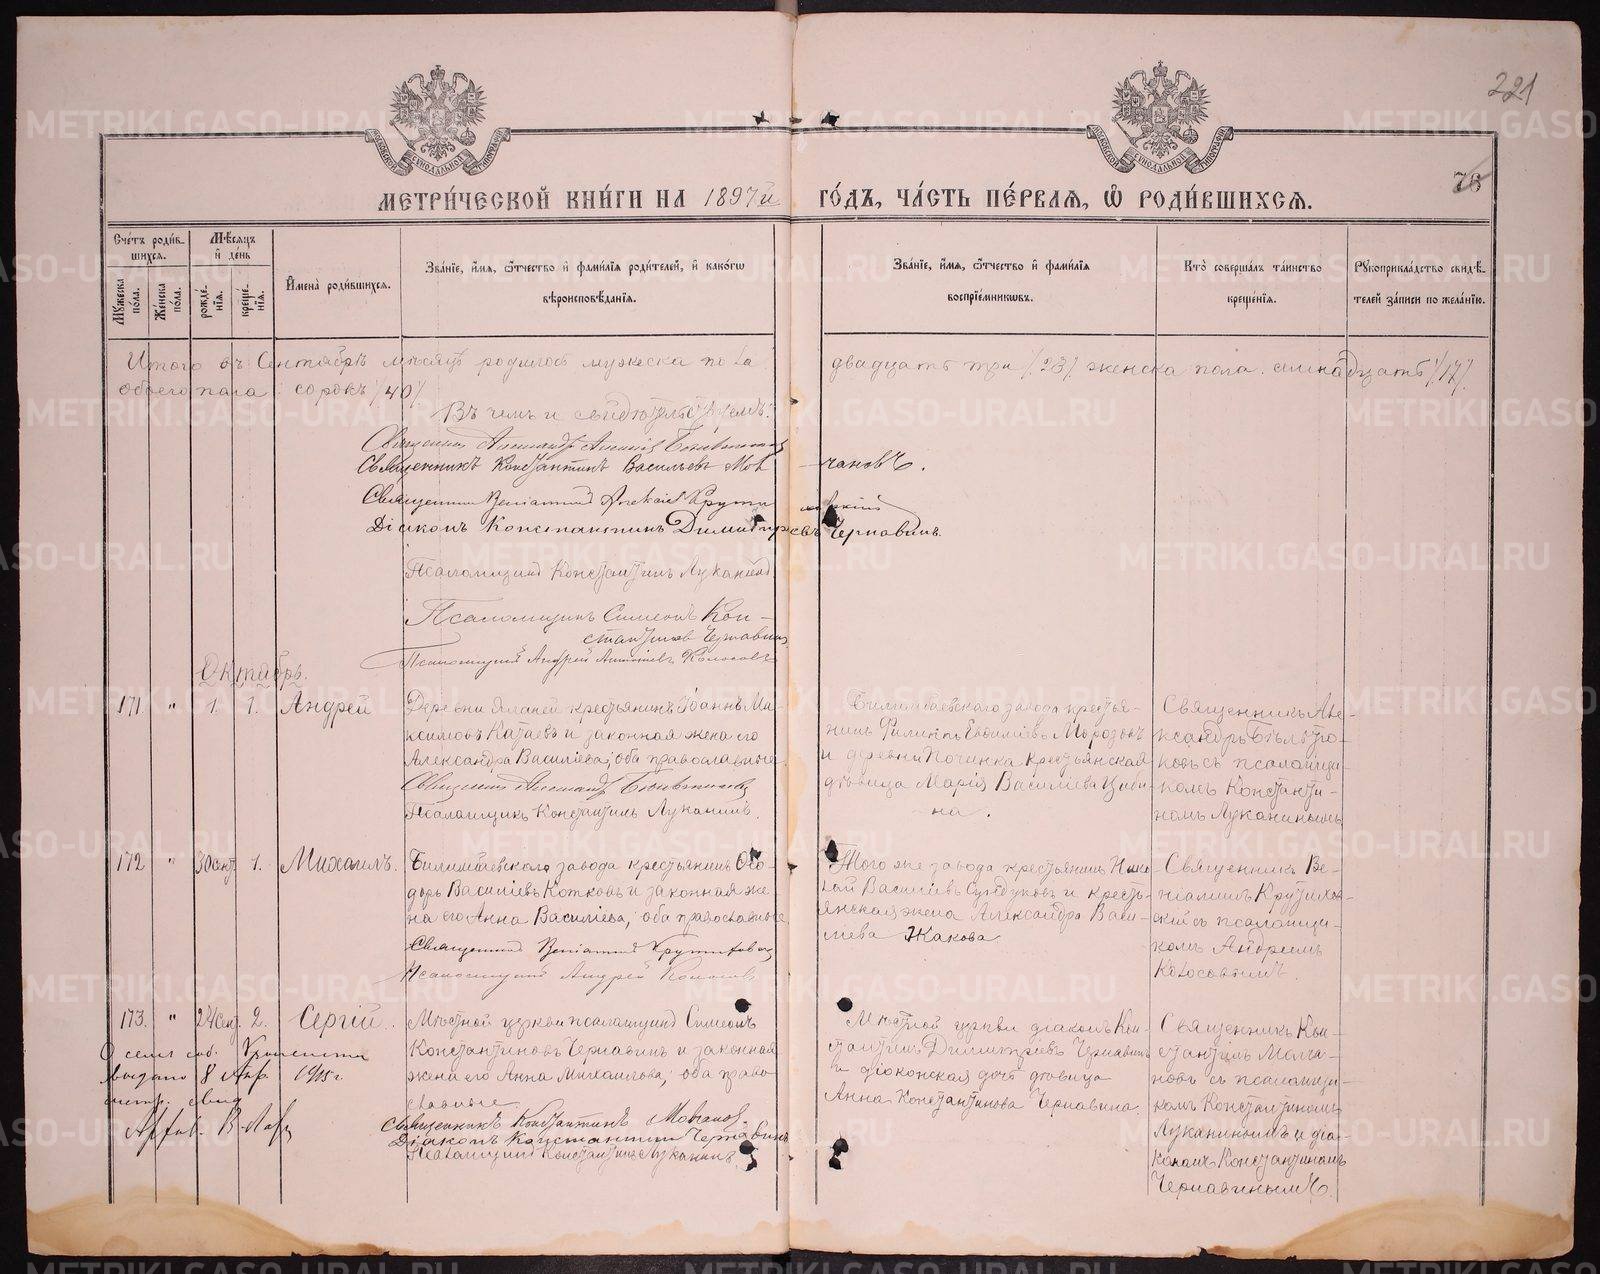 221
76
МЕТРИЧЕСКОЙ КНИГИ НА 1897й ГОДЪ, ЧАСТЬ ПЕРВАЯ, Ѿ РОДИВШИХСЯ.
Счетъ родив-
шихся.
Мужеска
пола.
Женска
пола.
Мѣсяцъ
и день
рожде-
нія.
креще-
нія.
Имена родившихся.
Званіе, имя, ѿтчество и фамилія родителей, и какогѡ
вѣроисповѣданія.
Званіе, имя, ѿтчество и фамилія
воспріемниковъ.
Кто совершалъ таинство
крещенія.
Рукоприкладство свидѣ-
телей записи по желанію.
Итого въ Сентябрѣ мѣсяцѣ родилось мужеска пола двадцать три /23/ женска пола семнадцать /17/
обоего пола сорокъ /40/
Въ чемъ и свидѣтельствуемъ:
Священникъ Александръ Алексіевъ
Священникъ Константинъ Васильевъ Молчановъ.
Священникъ Веніаминъ Алексіевъ Крутиховскій
Діаконъ Константинъ Димитріевъ Чернавинъ.
Псаломщикъ Константинъ Луканинъ
Псаломщикъ Симеонъ Кон-
стантиновъ Чернавинъ
Псаломщикъ Андрей Колосовъ
Октябрь.
171. " 1. 1. Андрей
Деревни крестьянинъ Іоаннъ Ма-
ксимовъ Катаевъ и законная жена его
Александра Василіева, оба православные
Священникъ Александръ
Псаломщикъ Константинъ Луканинъ.
Билимбаевскаго завода крестья-
нинъ Филиппъ Евфиміевъ Морозовъ
и деревни Починка крестьянская
дѣвица Марія Василіева
на.
Священникъ Але-
ксандръ
новъ съ псаломщи-
комъ Константи-
номъ Луканинымъ
172 " 30 сент. 1. Михаилъ.
Билимбаевскаго завода крестьянинъ Ѳео-
доръ Василіевъ Котковъ и законная же-
на его Анна Василіева, оба православные
Священникъ Веніаминъ Крутиховскій
Псаломщикъ Андрей Колосовъ
Того же завода крестьянинъ Нико-
лай Василіевъ и кресть-
янская жена Александра Васи-
лиева Жакова.
Священникъ Ве-
ніаминъ Крутихов-
скій съ псаломщи-
комъ Андреемъ
Колосовымъ.
173. " 24 сент. 2. Сергій.
Мѣстной церкви псаломщикъ Симеонъ
Константиновъ Чернавинъ и законная
жена его Анна Михаилова, оба право-
славные
Священникъ Константинъ Молчановъ.
Діаконъ Константинъ Чернавинъ
Псаломщикъ Константинъ Луканинъ.
О семъ
выдано 8 1915 г.
метр. свид.
Мѣстной церкви діаконъ Кон-
стантинъ Димитріевъ Чернавинъ
и діаконская дочь дѣвица
Анна Константинова Чернавина.
Священникъ Кон-
стантинъ Молча-
новъ съ псаломщи-
комъ Константиномъ
Луканинымъ и діа-
кономъ Константиномъ
Чернавинымъ.
METRIKI.GASO-URAL.RU